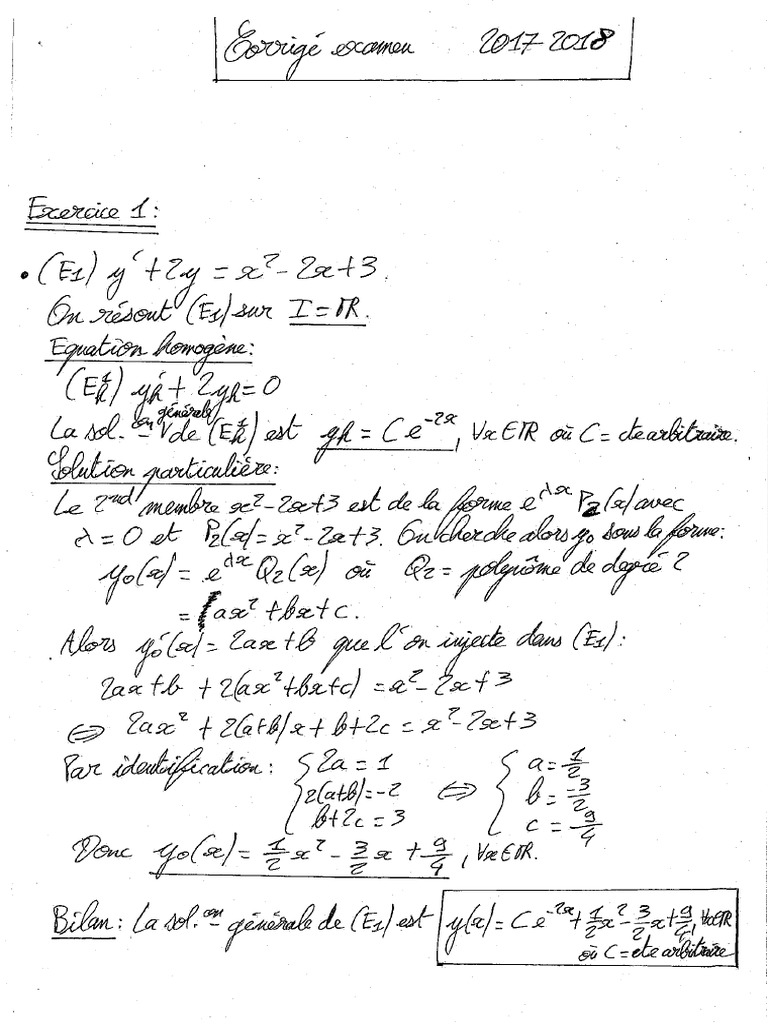 Corrigé examen 2017-2018
Exercice 1:
• (E1) y' + 2y = x² - 2x + 3.
On résout (E1) sur I = ℝ.
Equation homogène:
(E¹ₕ) y'ₕ + 2yₕ = 0
La sol.on générale de (E¹ₕ) est yₕ = C e^{-2x}, ∀x∈ℝ où C = cte arbitraire.
Solution particulière:
Le 2nd membre x² - 2x + 3 est de la forme e^{λx} P₂(x) avec
λ = 0 et P₂(x) = x² - 2x + 3. On cherche alors y₀ sous la forme:
y₀(x) = e^{λx} Q₂(x) où Q₂ = polynôme de degré 2
= ax² + bx + c.
Alors y₀'(x) = 2ax + b que l'on injecte dans (E1):
2ax + b + 2(ax² + bx + c) = x² - 2x + 3
⇔ 2ax² + 2(a+b)x + b + 2c = x² - 2x + 3
Par identification: { 2a = 1 ; 2(a+b) = -2 ; b + 2c = 3 ⇔ { a = 1/2 ; b = -3/2 ; c = 9/4
Donc y₀(x) = 1/2 x² - 3/2 x + 9/4, ∀x∈ℝ.
Bilan: La sol.on générale de (E1) est y(x) = C e^{-2x} + 1/2 x² - 3/2 x + 9/4, ∀x∈ℝ
où C = cte arbitraire